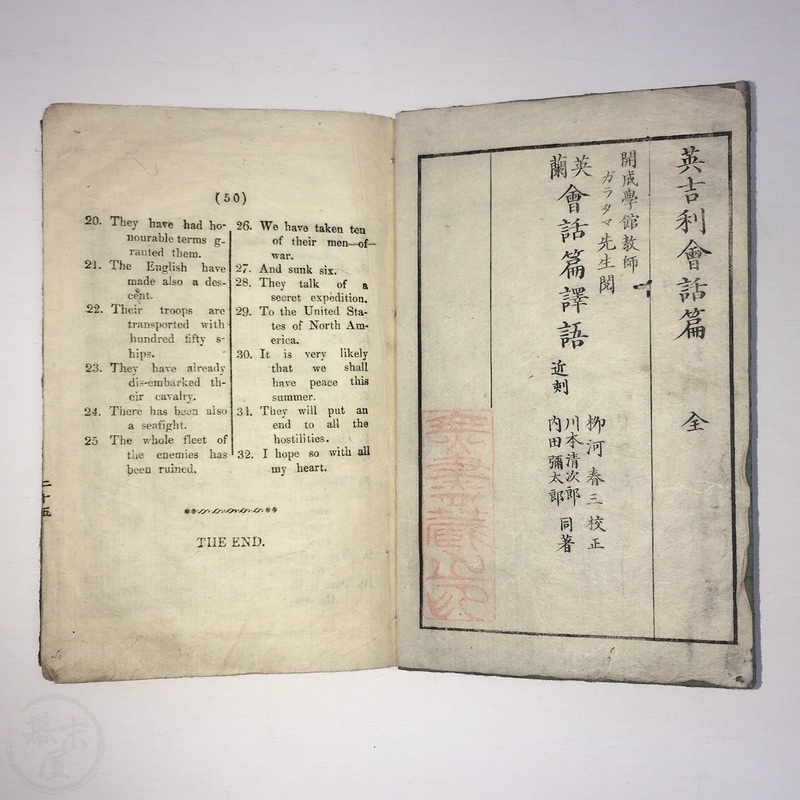 (50)
20. They have had ho-
nourable terms g-
ranted them.
21. The English have
made also a des-
cent.
22. Their troops are
transported with
hundred fifty s-
hips.
23. They have already
dis-embarked th-
eir cavalry.
24. There has been also
a seafight.
25 The whole fleet of
the enemies has
been ruined.
26. We have taken ten
of their men-of-
war.
27. And sunk six.
28. They talk of a
secret expedition.
29. To the United Sta-
tes of North Am-
erica.
30. It is very likely
that we shall
have peace this
summer.
31. They will put an
end to all the
hostilities.
32. I hope so with all
my heart.
THE END.
二十五
英吉利會話篇 全
開成學館教師
ガラタマ先生閲
英蘭會話篇譯語 近刻
柳河春三校正
川本清次郎
内田彌太郎
同著
幕末屋